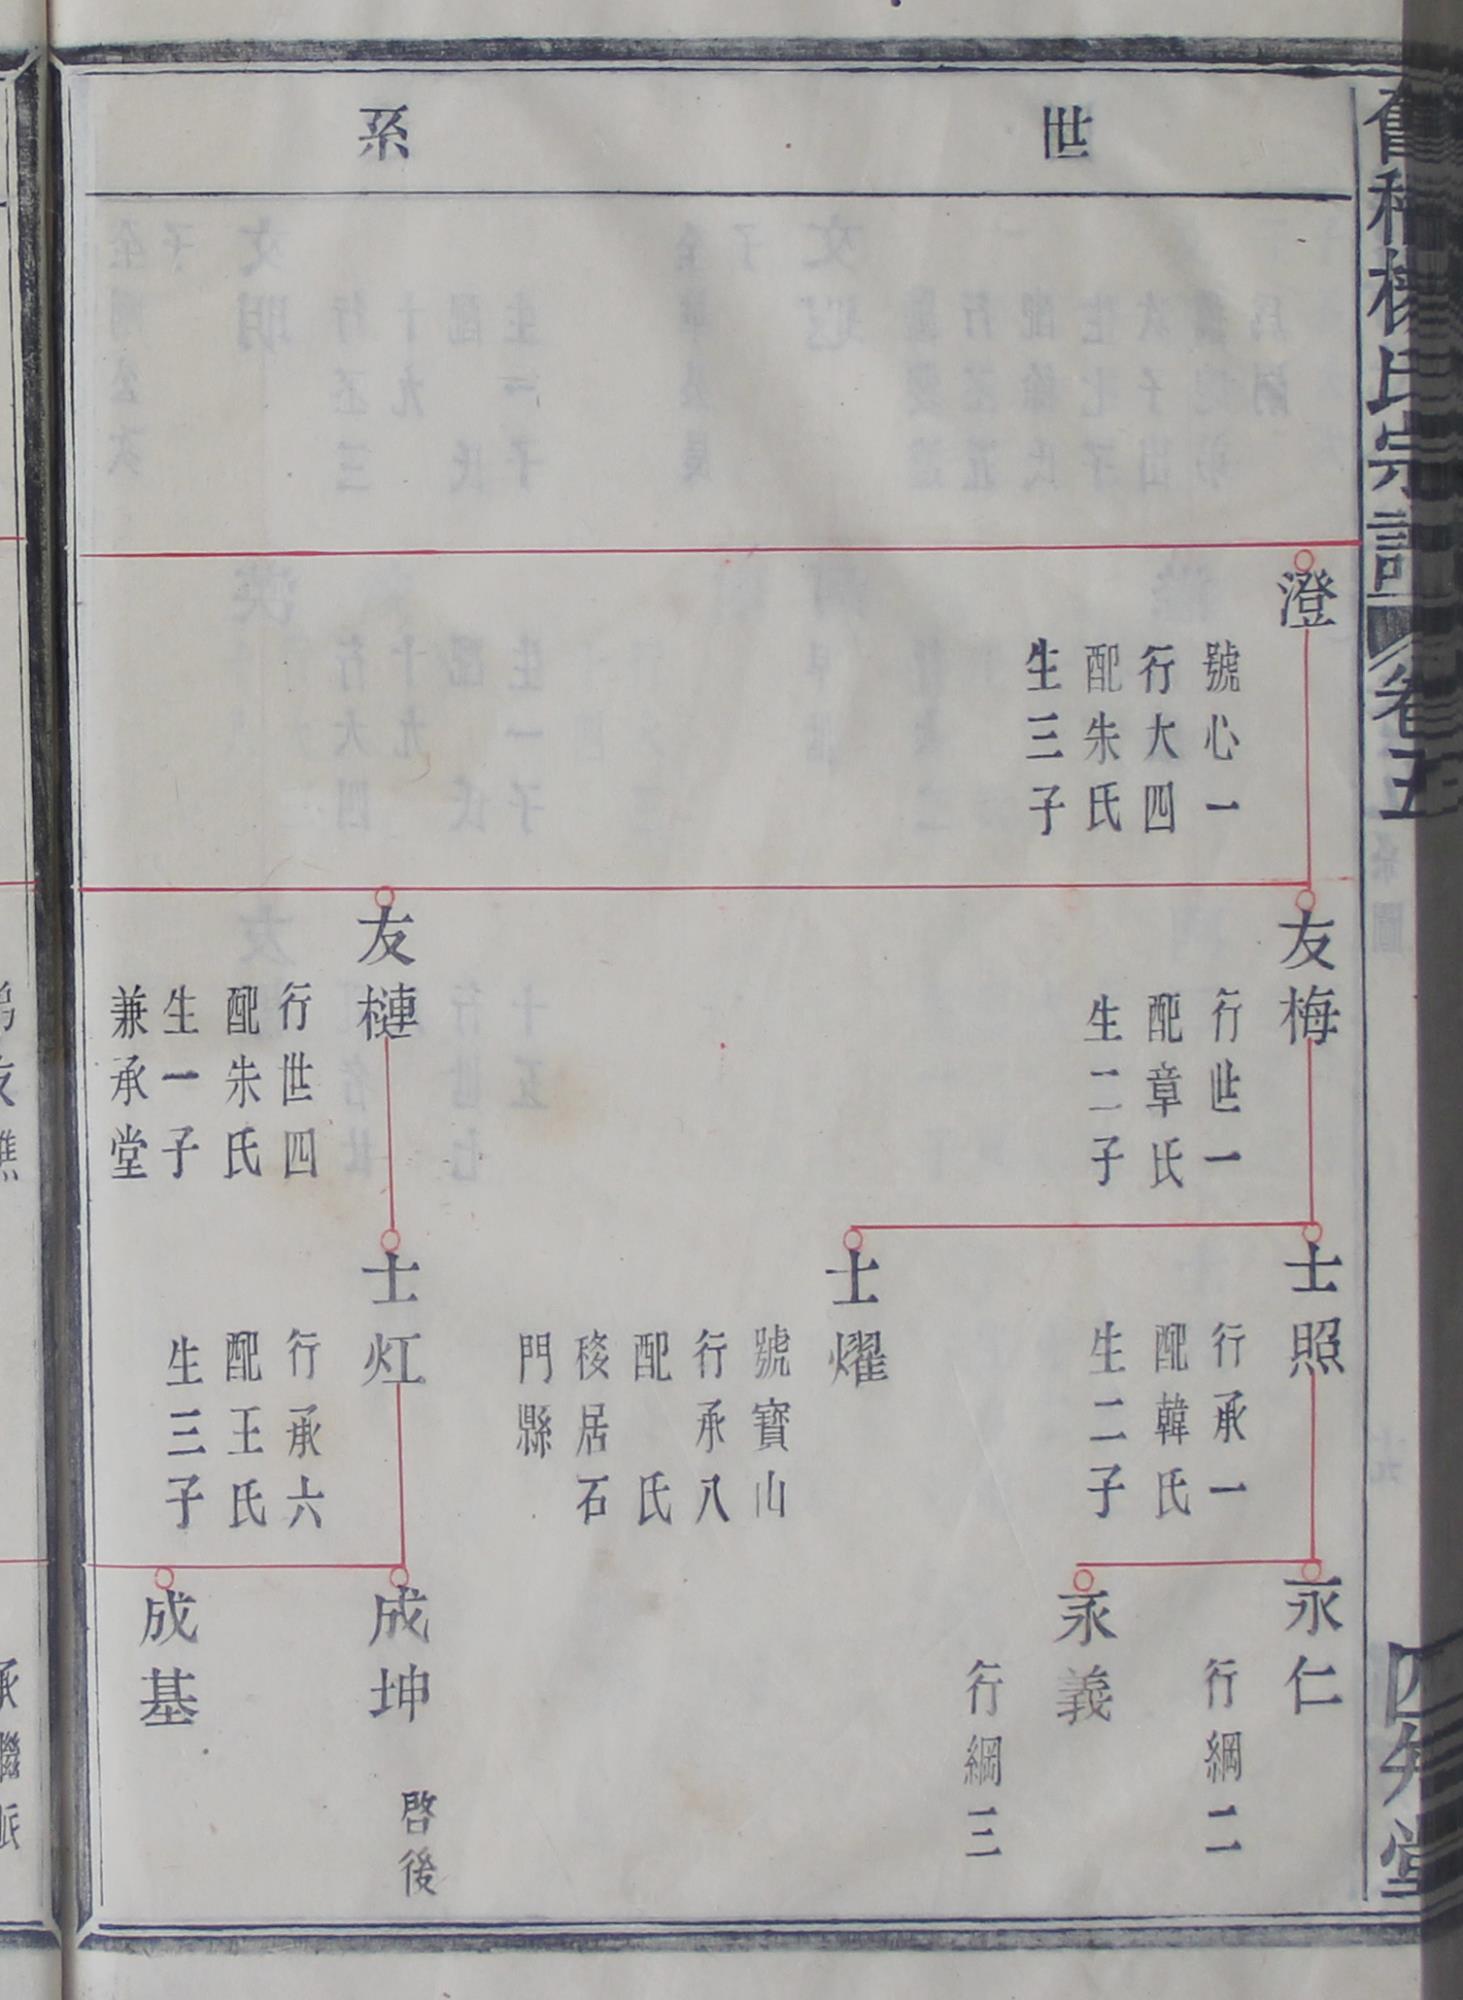 楊氏宗譜 卷五 四知堂
世系
澄
號心一
行大四
配朱氏
生三子
友梅
行世一
配章氏
生二子
友槤
行世四
配朱氏
生一子
兼承堂
士照
行承一
配韓氏
生二子
士燿
號寶山
行承八
配 氏
移居石
門縣
士灴
行承六
配王氏
生三子
永仁
行綱二
永義
行綱三
成坤
啓後
成基